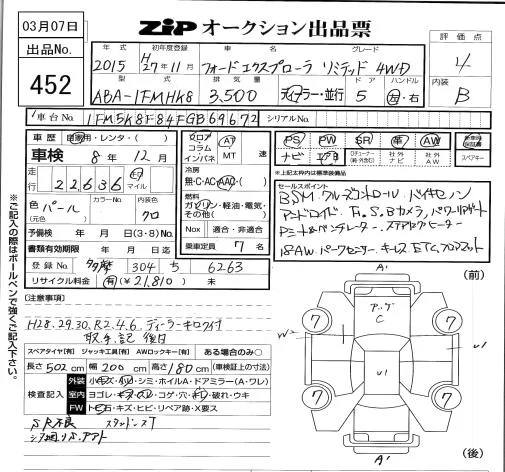 03月07日
ZIP オークション出品票
出品No.
452
年式 初年度登録 車名 グレード
2015 H27年11月 フォードエクスプローラ リミテッド 4WD
型式 排気量 ドア ハンドル
ABA-1FMHK8 3,500 ディーラー・並行 5 左・右
評価点
4
内装
B
車台No. 1FM5K8F84FGB69672 シリアルNo.
車歴 自家用・レンタ・( )
車検 8年 12月
走行 22636 キロ マイル
フロア コラム インパネ AT MT 速
冷房 無・C・AC・AAC・( )
色 パール (元色) カラーNo. 内装色 クロ
燃料 ガソリン・軽油・電気・その他( )
予備検 年 月 日(3・8)No.
Nox 適合・非適合
書類有効期限 年 月 日
乗車定員 7 名
登録No. 多摩 304 ち 6263
リサイクル料金 有(¥21,810) 未
PS PW SR 革 AW
ナビ エアB Cチューナー(純・外含む) 社外ナビ 社外AW
スペアキー
*上記太枠内は標語
セールスポイント
BSM クルーズコントロール
18AW パークセンサー キーレス ETC フロアマット
[注意事項]
H28.29.30.R2.4.6. ディーラーキロク付
取・記 後日
スペアタイヤ[有] ジャッキ工具[有] AWロックキー[有] ある場合のみ○
長さ 502 cm 幅 200 cm 高さ 180 cm (車検証上の寸法)
検査記入
外装 小キズ・小凹・シミ・ホイルA・ドアミラー(A・ワレ)
室内 ヨゴレ・キズ・スレ・コゲ・穴・ハガレ・破れ・ウキ
FW トビ石・キズ・ヒビ・リペア跡・X要ス
SR不良
(前)
A'
アッゲ
C
7 7
W2
U1
U1
7 7
A'
(後)
※ご記入の際はボールペンで強くご記入下さい。